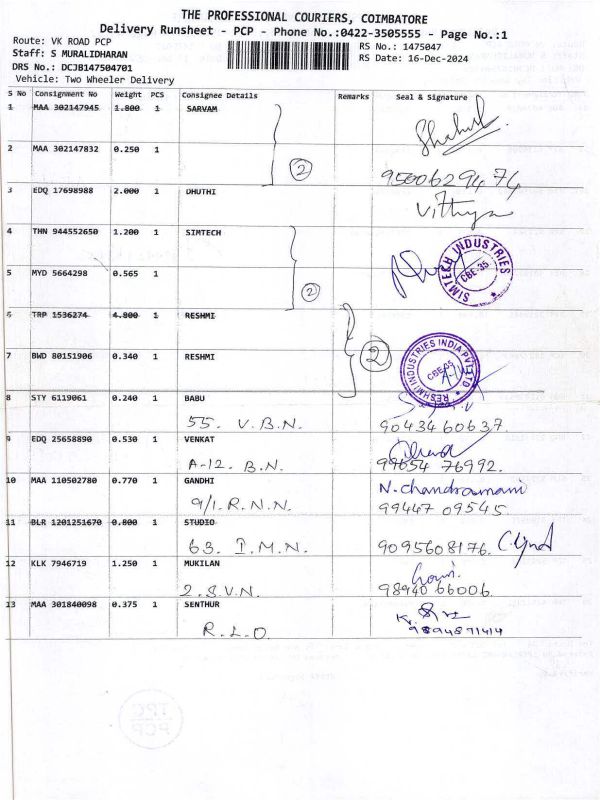 THE PROFESSIONAL COURIERS, COIMBATORE
Delivery Runsheet - PCP - Phone No.:0422-3505555 - Page No.:1
Route: VK ROAD PCP
Staff: S MURALIDHARAN
DRS No.: DCJB147504701
Vehicle: Two Wheeler Delivery
RS No.: 1475047
RS Date: 16-Dec-2024
S No Consignment No Weight PCS Consignee Details Remarks Seal & Signature
1 MAA 302147945 1.800 1 SARVAM
2 MAA 302147832 0.250 1
2
9500629474
3 EDQ 17698988 2.000 1 DHUTHI
Vithya
4 THN 944552650 1.200 1 SIMTECH
SIMTECH INDUSTRIES
CBE-35
5 MYD 5664298 0.565 1
2
6 TRP 1536274 4.800 1 RESHMI
2
RESHMI INDUSTRIES INDIA PVT LTD
CBE-35
7 BWD 80151906 0.340 1 RESHMI
8 STY 6119061 0.240 1 BABU
55. V.B.N. 9043460637.
9 EDQ 25658890 0.530 1 VENKAT
A-12. B.N. 99654 76992.
10 MAA 110502780 0.770 1 GANDHI N. chandramani
9/1. R.N.N. 99447 09545.
11 BLR 1201251670 0.800 1 STUDIO
63. I.M.N. 9095608176.
12 KLK 7946719 1.250 1 MUKILAN
2.S.V.N. 98940 66006.
13 MAA 301840098 0.375 1 SENTHUR
R.L.O. 9894871414